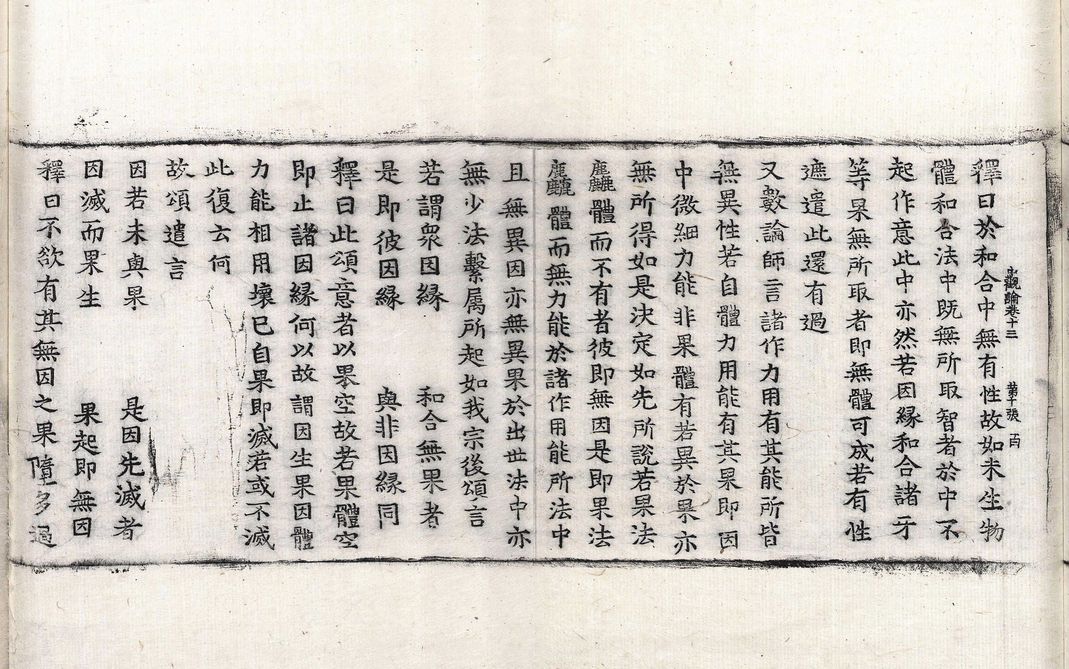 釋曰於和合中無有性故如未生物
觀論卷十三 第十張
體和合法中既無所取智者於中不
起作意此中亦然若因緣和合諸牙
等果無所取者即無體可成若有性
遮遣此還有過
又數論師言諸作力用有其能所皆
無異性若自體力用能有其果即因
中微細力能非果體有若異於果亦
無所得如是決定如先所說若果法
麤體而不有者彼即無因是即果法
麤體而無力能於諸作用能所法中
且無異因亦無異果於出世法中亦
無少法繫屬所起如我宗後頌言
若謂衆因緣 和合無果者
是即彼因緣 與非因緣同
釋曰此頌意者以果空故若果體空
即止諸因緣何以故謂因生果因體
力能相用壞已自果即滅若或不滅
此復云何
故頌遣言
因若未與果 是因先滅者
因滅而果生 果起即無因
釋曰不欲有其無因之果墮多過